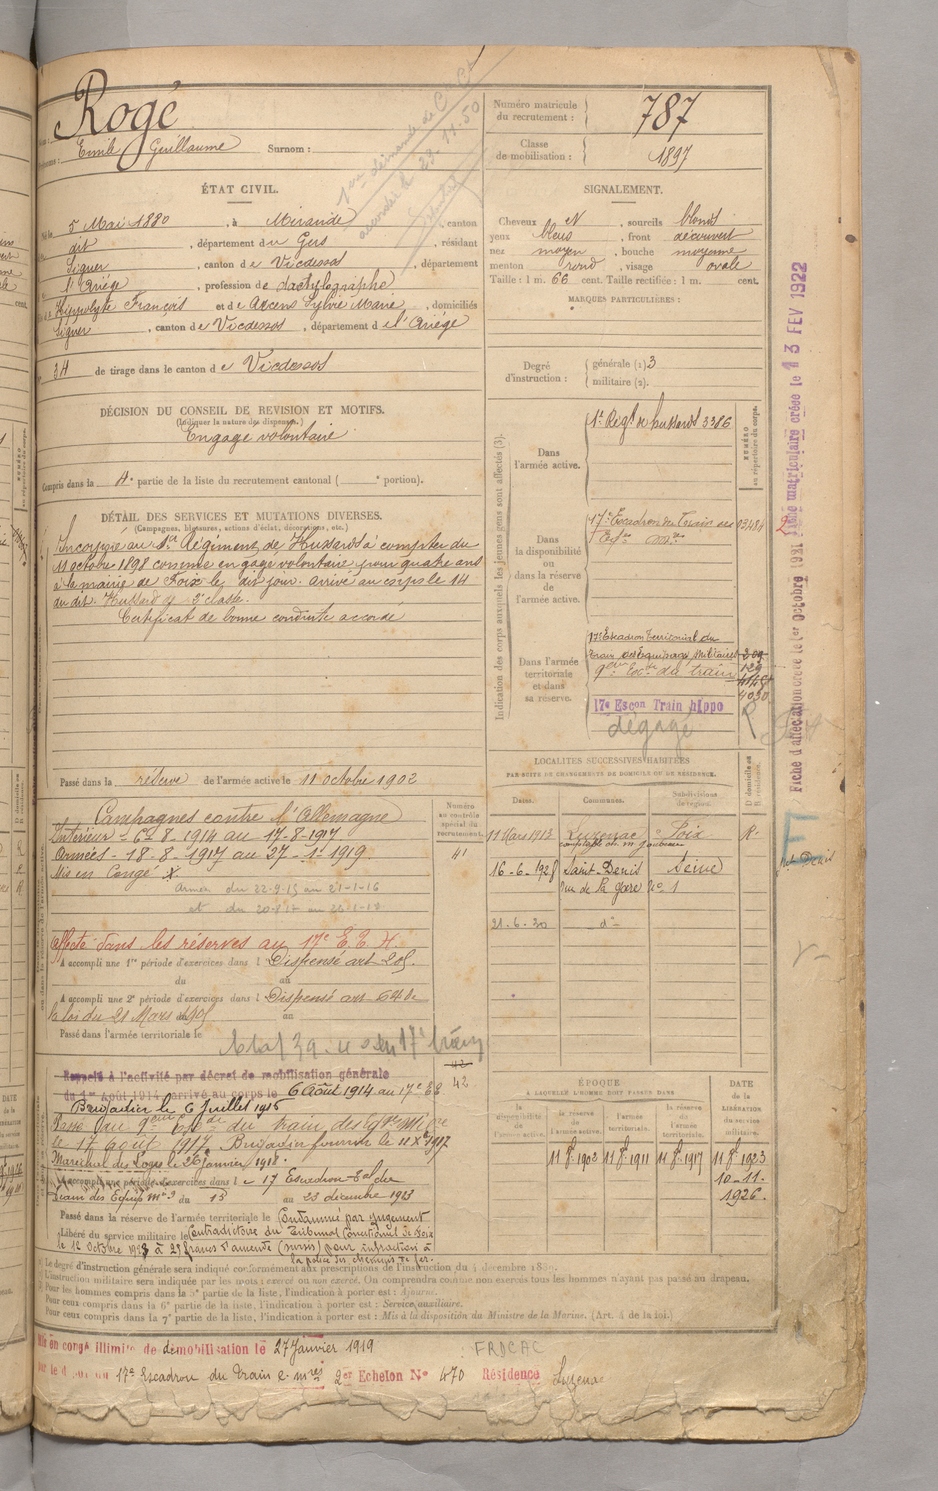 Rogé
Emile Guillaume Surnom :
Numéro matricule du recrutement : 787
Classe de mobilisation : 1897
1re demande de C. Ct
accordée le 28-11-50
ÉTAT CIVIL.
5 Mai 1880, à Mirande, canton
dit, département du Gers, résidant
Siguer, canton de Vicdessos, département
l'Ariège, profession de dactylographe
Hippolyte François et de Accens Sylvie Marie, domiciliés
Siguer, canton de Vicdessos, département de l'Ariège
34 de tirage dans le canton de Vicdessos
SIGNALEMENT.
Cheveux N, sourcils blonds
yeux bleus, front découvert
nez moyen, bouche moyenne
menton rond, visage ovale
Taille : 1 m. 66 cent. Taille rectifiée : 1 m. cent.
MARQUES PARTICULIÈRES :
Degré d'instruction : générale (1) 3
militaire (2).
DÉCISION DU CONSEIL DE REVISION ET MOTIFS.
(Indiquer la nature des dispenses.)
Engagé volontaire
Compris dans la 4e partie de la liste du recrutement cantonal ( e portion).
DÉTAIL DES SERVICES ET MUTATIONS DIVERSES.
(Campagnes, blessures, actions d'éclat, décorations, etc.)
Incorporé au 1er Régiment de Hussards à compter du
11 octobre 1898 comme engagé volontaire pour quatre ans
à la mairie de Foix le dit jour. arrivé au corps le 14
du dit. Hussard de 2e classe.
Certificat de bonne conduite accordé
Passé dans la réserve de l'armée active le 11 octobre 1902
Indication des corps auxquels les jeunes gens sont affectés (3).
NUMÉRO au répertoire du corps.
Dans l'armée active.
1er Régt de hussards 3386
Dans la disponibilité ou dans la réserve de l'armée active.
17e Escadron du Train des 03484
Eqges Mres
Dans l'armée territoriale et dans sa réserve.
17e Escadron Territorial du
Train des Equipages Militaires
9eme Esc. du train
17e Escon Train hippo
dégagé
4030
Fiche d'affectation créée le 1er octobre 1921 Fiche matriculaire créée le 13 FEV 1922
Campagnes contre l'Allemagne
Intérieur - 6-8-1914 au 17-8-1917
Armées - 18-8-1917 au 27-1-1919.
Mis en Congé X
Armées du 22-9-15 au 21-1-16
affecté dans les réserves au 17e E. E. H.
A accompli une 1re période d'exercices dans l Dispensé art
du au
A accompli une 2e période d'exercices dans l Dispensé art 64 de
la loi du 21 Mars 1905 au
Passé dans l'armée territoriale le
Numéro au contrôle spécial du recrutement.
41
42
LOCALITÉS SUCCESSIVES HABITÉES
PAR SUITE DE CHANGEMENTS DE DOMICILE OU DE RÉSIDENCE.
Dates. Communes. Subdivisions de région. D domicile ou R résidence.
11 Mars 1913 Luzenac Foix R.
16-6-1928 Saint-Denis Seine
rue de la gare No 1
21-6-30 do
Rappelé à l'activité par décret de mobilisation générale
du 1er Août 1914 arrivé au corps le 6 Août 1914 au 17e
Brigadier le 6 Juillet 1915
Passé au 9eme Esc. du train des Eqges Mres
le 17 août 1917. Brigadier fourrier le 11 Xbre 1917
Maréchal des Logis le 26 janvier 1918.
A accompli une période d'exercices dans l e 17 Escadron du
Train des Equip. Mres du 13 au 23 décembre 1913
Passé dans la réserve de l'armée territoriale le Condamné par jugement
Libéré du service militaire le Contradictoire du Tribunal Correctionnel de Foix
à 25 francs d'amende (sursis) pour infraction à
la police des chemins de fer.
ÉPOQUE
A LAQUELLE L'HOMME DOIT PASSER DANS
DATE DE LA LIBÉRATION du service militaire.
la disponibilité de l'armée active. la réserve de l'armée active. l'armée territoriale. la réserve de l'armée territoriale.
11 8bre 1902 11 8bre 1911 11 8bre 1917 11 8bre 1923
10-11-
1926.
Le degré d'instruction générale sera indiqué conformément aux prescriptions de l'instruction du 4 décembre 1889.
L'instruction militaire sera indiquée par les mots : exercé ou non exercé. On comprendra comme non exercés tous les hommes n'ayant pas passé au drapeau.
Pour les hommes compris dans la 5e partie de la liste, l'indication à porter est : Ajourné.
Pour ceux compris dans la 6e partie de la liste, l'indication à porter est : Service auxiliaire.
Pour ceux compris dans la 7e partie de la liste, l'indication à porter est : Mis à la disposition du Ministre de la Marine. (Art. 4 de la loi.)
Mis en congé illimité de démobilisation le 27 Janvier 1919
17e Escadron du Train 2er Echelon No 470 Résidence Luzenac